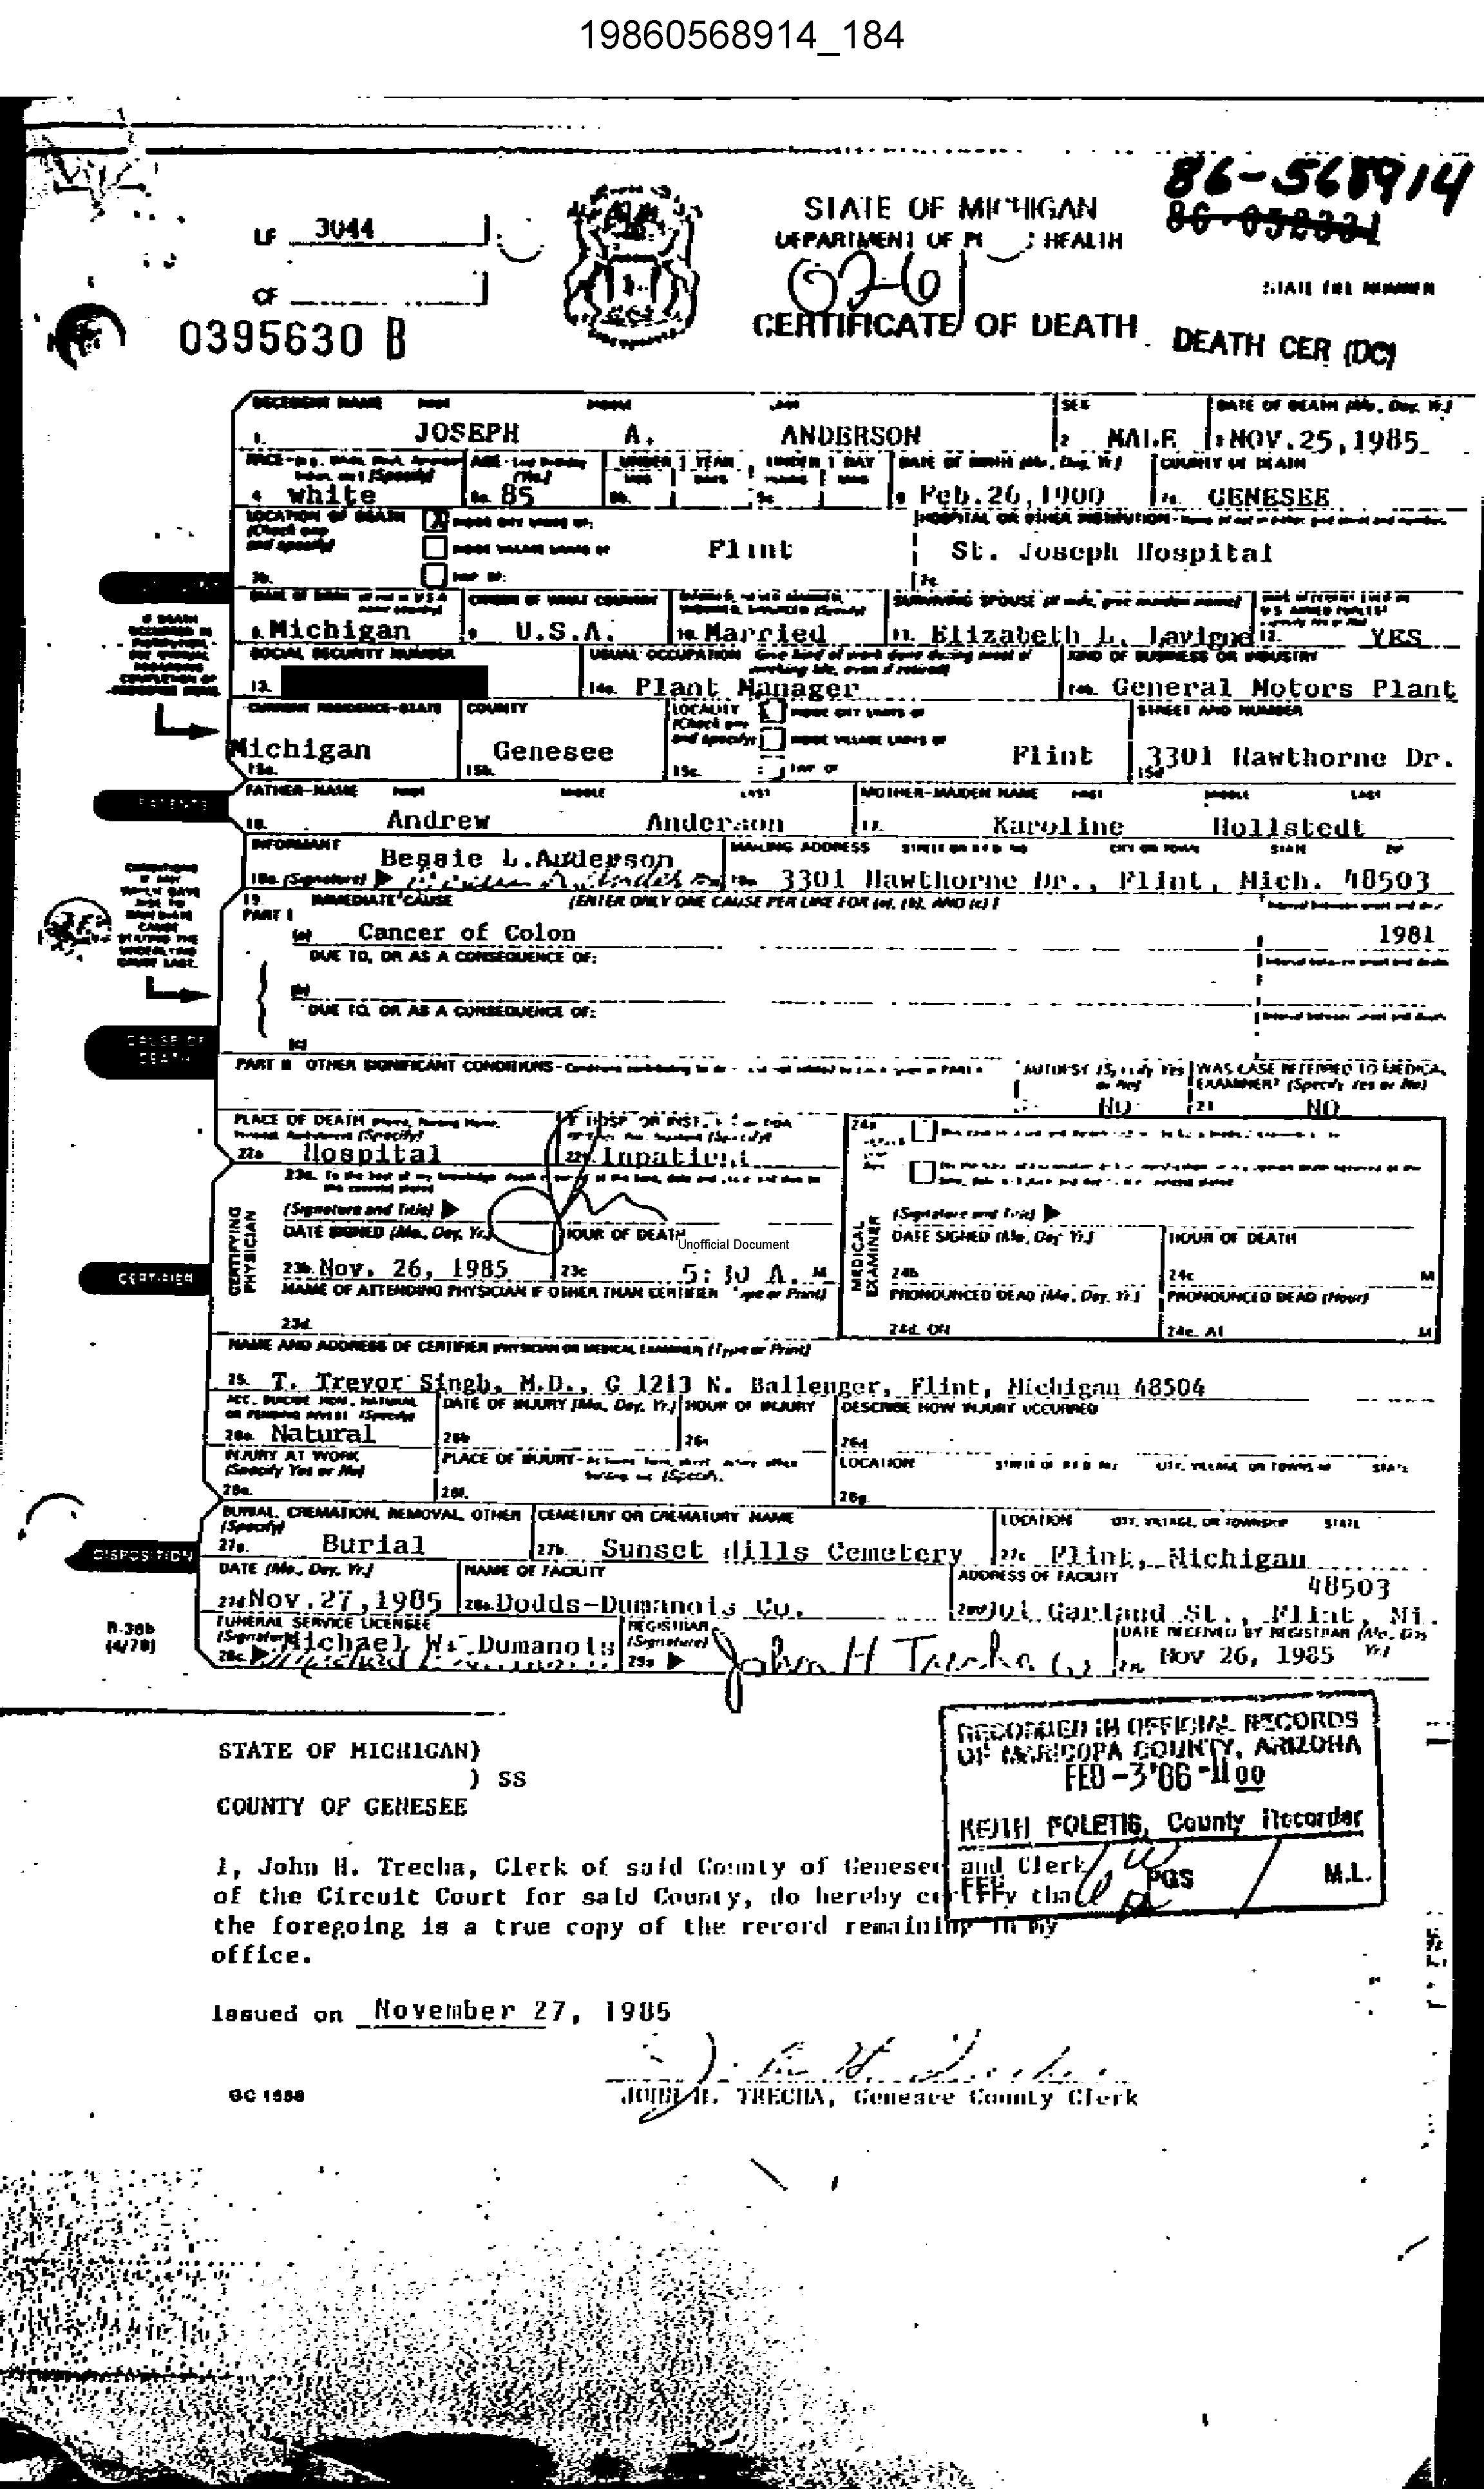 19860568914_184
86-568914
86-058331
LF 3044
STATE OF MICHIGAN
DEPARTMENT OF HEALTH
CF
02-61
STATE FILE NUMBER
0395630 B
CERTIFICATE OF DEATH
DEATH CER (DC)
DECEDENT NAME FIRST MIDDLE LAST SEX DATE OF DEATH (Mo., Day, Yr.)
1. JOSEPH A. ANDERSON 2 MALE 3 NOV.25,1985
RACE AGE-Last Birthday (Yrs.) UNDER 1 YEAR UNDER 1 DAY DATE OF BIRTH (Mo., Day, Yr.) COUNTY OF DEATH
(Specify) MOS DAYS HOURS MINS
4 white 5a. 85 5b. 5c 6 Feb.26,1900 7a. GENESEE
LOCATION OF DEATH INSIDE CITY LIMITS OF: HOSPITAL OR OTHER INSTITUTION-Name (If not in either, give street and number)
(Check one and specify) INSIDE VILLAGE LIMITS OF Flint St. Joseph Hospital
7b. TWP OF: 7c
CITIZEN OF WHAT COUNTRY SURVIVING SPOUSE (If wife, give maiden name)
8. Michigan 9 U.S.A. 10. Married 11. Elizabeth L. Lavigne 12. YES
SOCIAL SECURITY NUMBER USUAL OCCUPATION (Give kind of work done during most of working life, even if retired) KIND OF BUSINESS OR INDUSTRY
13. 14a. Plant Manager 14b. General Motors Plant
CURRENT RESIDENCE-STATE COUNTY LOCALITY (Check one and specify) INSIDE CITY LIMITS OF STREET AND NUMBER
INSIDE VILLAGE LIMITS OF
Michigan Genesee Flint 3301 Hawthorne Dr.
15a. 15b. 15c. TWP OF 15d
PARENTS
FATHER-NAME FIRST MIDDLE LAST MOTHER-MAIDEN NAME FIRST MIDDLE LAST
16. Andrew Anderson 17. Karoline Hollstedt
INFORMANT MAILING ADDRESS STREET OR R.F.D. NO CITY OR TOWN STATE ZIP
Bessie L.Anderson
18a. (Signature) 18b. 3301 Hawthorne Dr., Flint, Mich. 48503
19. IMMEDIATE CAUSE (ENTER ONLY ONE CAUSE PER LINE FOR (a), (b), AND (c)) Interval between onset and death
PART I
(a) Cancer of Colon 1981
DUE TO, OR AS A CONSEQUENCE OF: Interval between onset and death
(b)
DUE TO, OR AS A CONSEQUENCE OF: Interval between onset and death
(c)
CAUSE OF DEATH
PART II OTHER SIGNIFICANT CONDITIONS AUTOPSY (Specify Yes or No) WAS CASE REFERRED TO MEDICAL EXAMINER? (Specify Yes or No)
NO 21 NO
PLACE OF DEATH (Specify)
22a Hospital 22b Inpatient
24a
(Signature and Title) (Signature and Title)
CERTIFYING PHYSICIAN
MEDICAL EXAMINER
DATE SIGNED (Mo., Day, Yr.) HOUR OF DEATH DATE SIGNED (Mo., Day, Yr.) HOUR OF DEATH
Unofficial Document
CERTIFIER
23b. Nov. 26, 1985 23c 5:30 A. M 24b 24c M
NAME OF ATTENDING PHYSICIAN IF OTHER THAN CERTIFIER (Type or Print) PRONOUNCED DEAD (Mo., Day, Yr.) PRONOUNCED DEAD (Hour)
23d. 24d. ON 24e. At M
NAME AND ADDRESS OF CERTIFIER (PHYSICIAN OR MEDICAL EXAMINER) (Type or Print)
25. T. Trevor Singh, M.D., G 1213 N. Ballenger, Flint, Michigan 48504
DATE OF INJURY (Mo., Day, Yr.) HOUR OF INJURY DESCRIBE HOW INJURY OCCURRED
26a. Natural 26b 26c 26d
INJURY AT WORK (Specify Yes or No) PLACE OF INJURY LOCATION STREET OR R.F.D. NO. CITY, VILLAGE OR TOWNSHIP STATE
26e. 26f. 26g.
BURIAL, CREMATION, REMOVAL, OTHER (Specify) CEMETERY OR CREMATORY NAME LOCATION CITY, VILLAGE, OR TOWNSHIP STATE
DISPOSITION
27a. Burial 27b. Sunset Hills Cemetery 27c Flint, Michigan
DATE (Mo., Day, Yr.) NAME OF FACILITY ADDRESS OF FACILITY 48503
27d Nov.27,1985 28a. Dodds-Dumanois Co. 28b 301 Garland St., Flint, Mi.
R-36b
(4/78)
FUNERAL SERVICE LICENSEE REGISTRAR DATE RECEIVED BY REGISTRAR (Mo., Day, Yr.)
(Signature) Michael W. Dumanois (Signature)
28c. 29a John H Trecha Nov 26, 1985
STATE OF MICHIGAN)
) SS
COUNTY OF GENESEE
RECORDED IN OFFICIAL RECORDS
OF MARICOPA COUNTY, ARIZONA
FEB -3'86 -11 00
KEITH POLETIS, County Recorder
FEE PGS M.L.
I, John H. Trecha, Clerk of said County of Genesee and Clerk
of the Circuit Court for said County, do hereby certify that
the foregoing is a true copy of the record remaining in my
office.
Issued on November 27, 1985
GC 1588
JOHN H. TRECHA, Genesee County Clerk